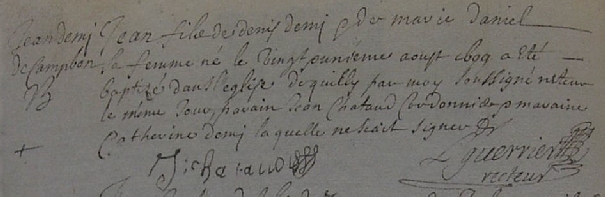 Jean demi Jean fils de denis demi & de marie daniel
de Campbon sa femme né le vingt unieme aoust 1609 a été
B baptisé dans l'eglise de quilly par moy soussigné recteur
le même jour, parain Jean Chataud Cordonnier & maraine
Catherine demi laquelle ne scait signer
+ J: chataud guerrier
recteur